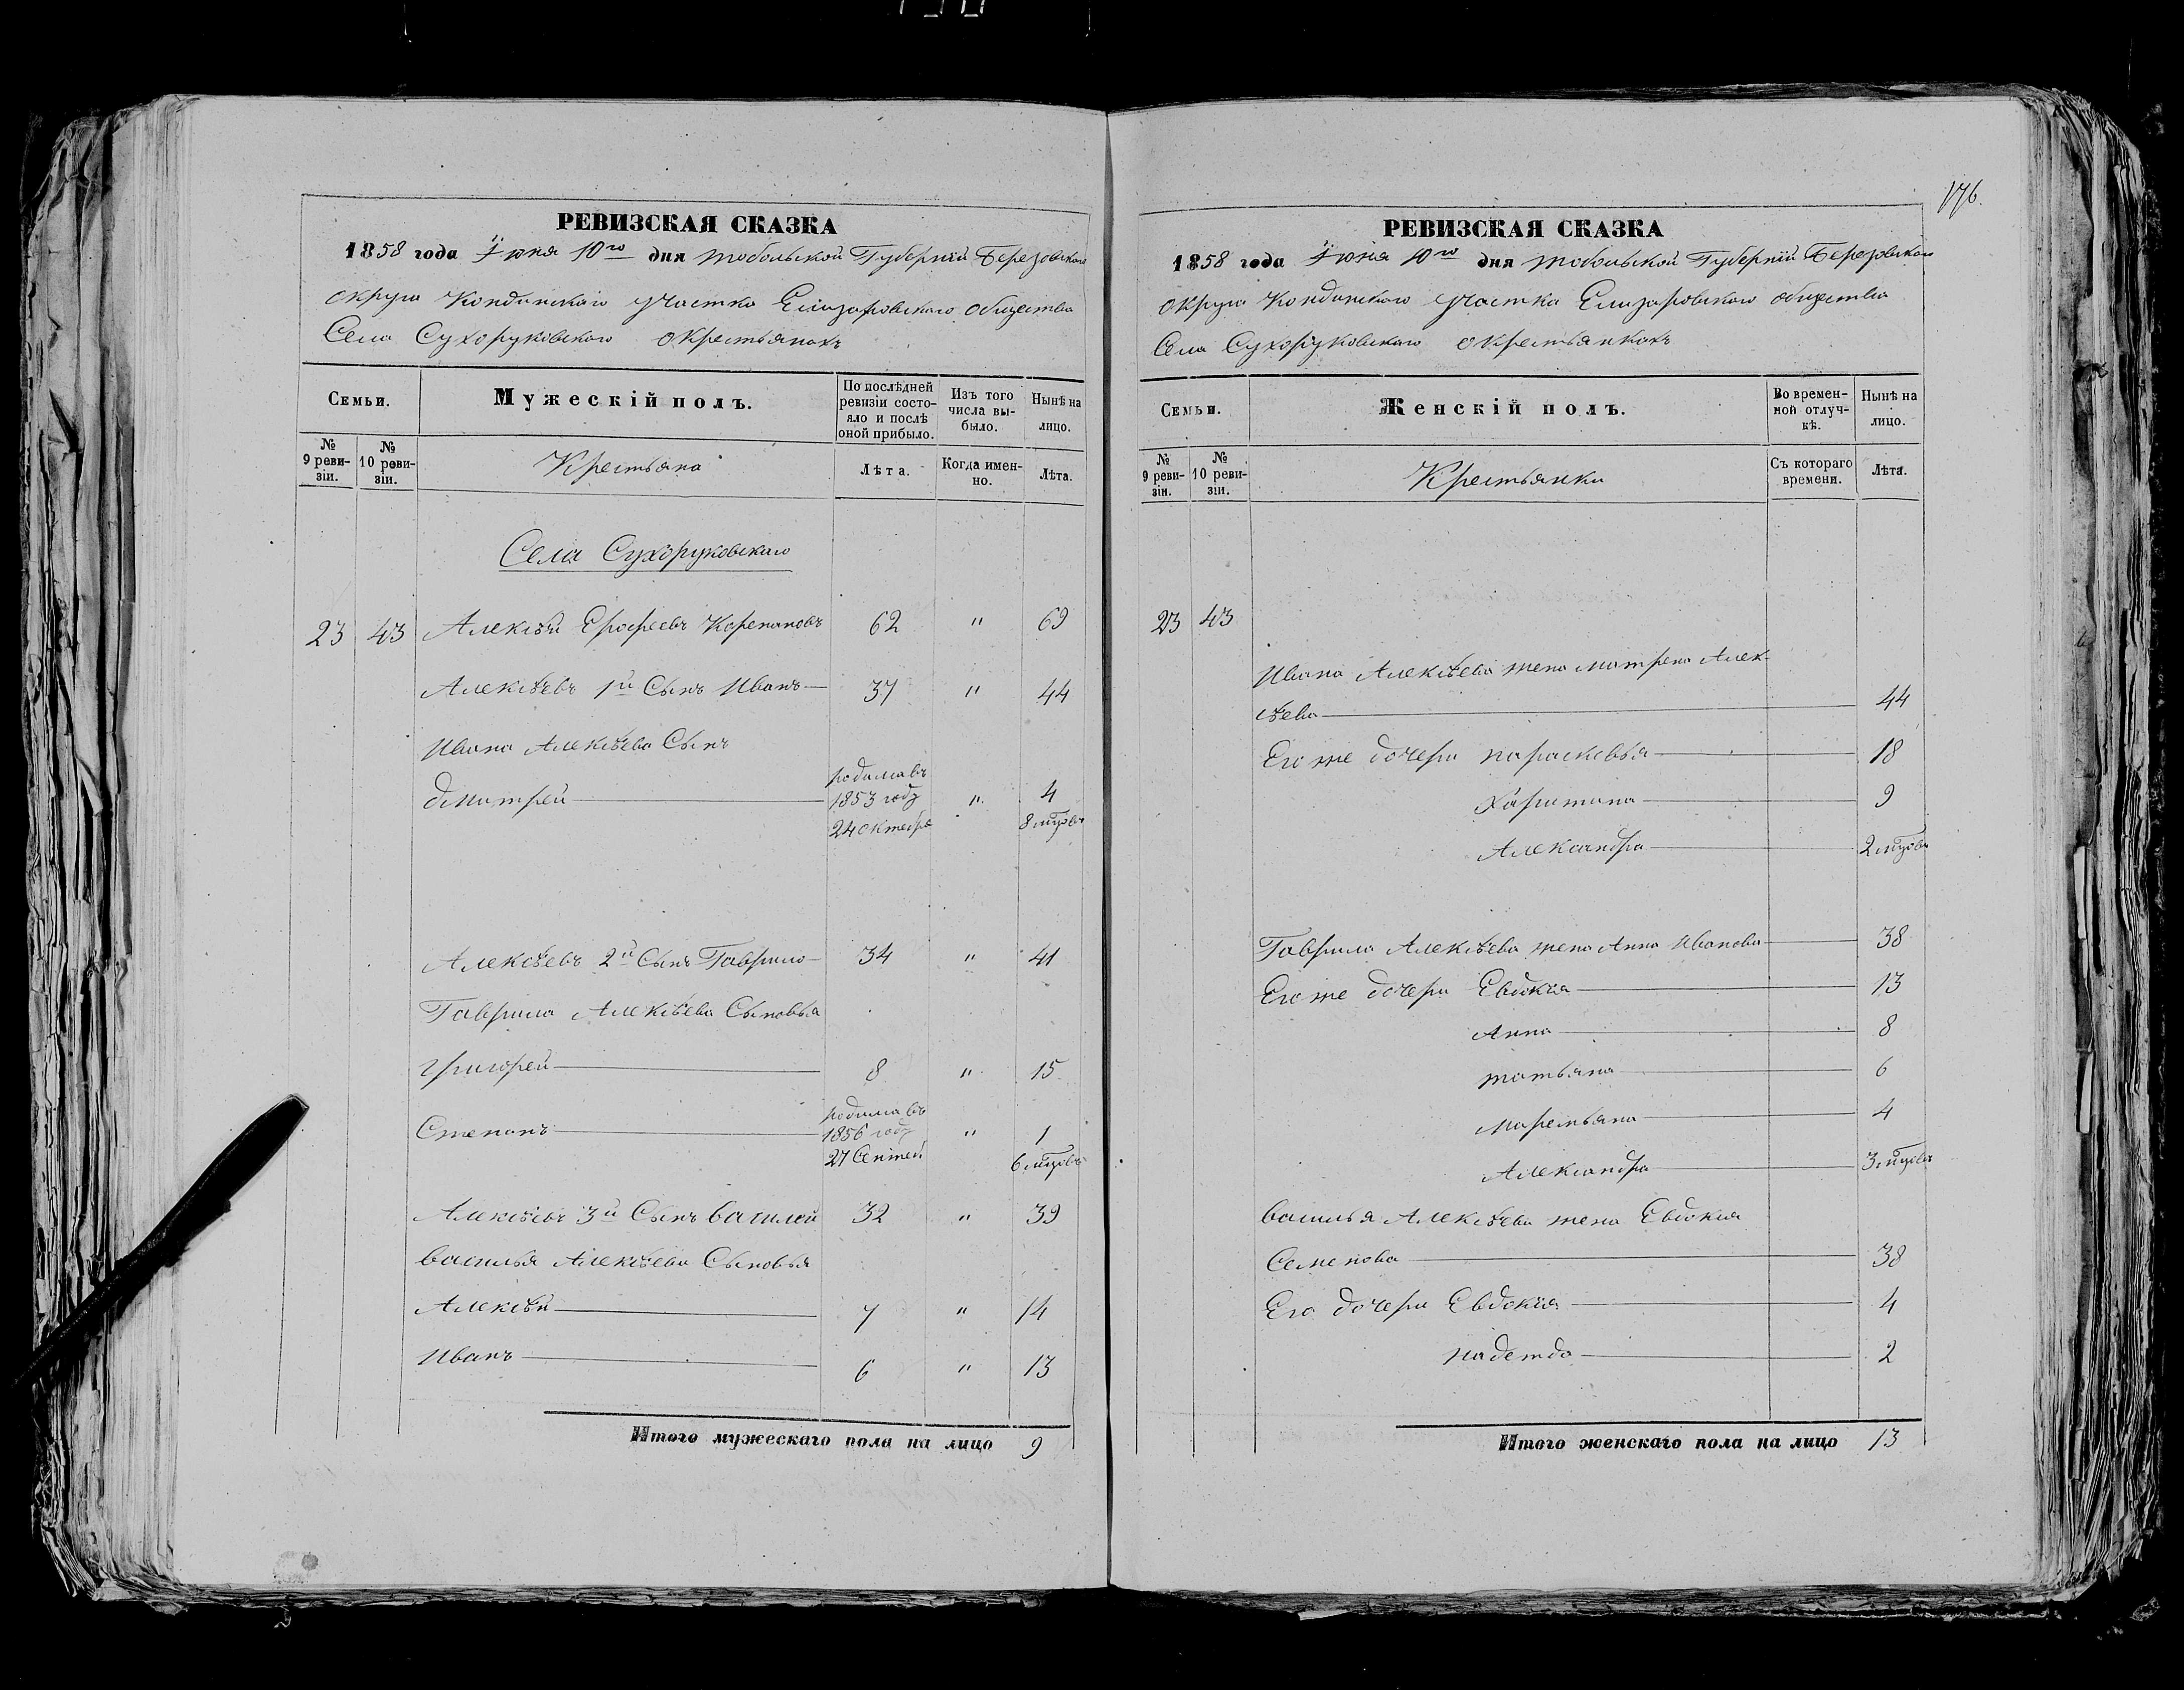 РЕВИЗСКАЯ СКАЗКА
1858 года Iюня 10го дня Тобольской Губернiи Березовскаго
округа Кондинскаго участка Елизаровскаго общества
Села Сухоруковскаго о крестьянахъ
Семьи.
Мужескiй полъ.
По послѣдней ревизiи состояло и послѣ оной прибыло.
Изъ того числа выбыло.
Нынѣ на лицо.
№ 9 ревизiи.
№ 10 ревизiи.
Крестьяна
Лѣта.
Когда именно.
Лѣта.
Села Сухоруковскаго
23 43 Алексѣй Ерофеевъ Корепановъ 62 " 69
Алексѣевъ 1й Сынъ Иванъ 37 " 44
Ивана Алексѣева Сынъ
Дмитрей родился въ 1853 году 24 октебря " 4 8 мцовъ
Алексѣевъ 2й Сынъ Гаврило 34 " 41
Гаврила Алексѣева Сыновья
Григорей 8 " 15
Степанъ родился въ 1856 году 27 Сентеб " 1 6 мцовъ
Алексѣевъ 3й Сынъ Василей 32 " 39
Василья Алексѣева Сыновья
Алексѣй 7 " 14
Иванъ 6 " 13
Итого мужескаго пола на лицо 9
176.
РЕВИЗСКАЯ СКАЗКА
1858 года Iюня 10го дня Тобольской Губернiи Березовскаго
округа Кондинскаго участка Елизаровскаго общества
Села Сухоруковскаго о крестьянкахъ
Семьи.
Женскiй полъ.
Во временной отлучкѣ.
Нынѣ на лицо.
№ 9 ревизiи.
№ 10 ревизiи.
Крестьянки
Съ котораго времени.
Лѣта.
23 43
Ивана Алексѣева жена Матрена Алек-
сѣева 44
Его же дочери Парасковья 18
Харитина 9
Александра 2 мцовъ
Гаврила Алексѣева жена Анна Иванова 38
Его же дочери Евдокiя 13
Анна 8
Татьяна 6
Маремьяна 4
Александра 3 мцовъ
Василья Алексѣева жена Евдокiя
Семенова 38
Его дочери Евдокiя 4
Надежда 2
Итого женскаго пола на лицо 13